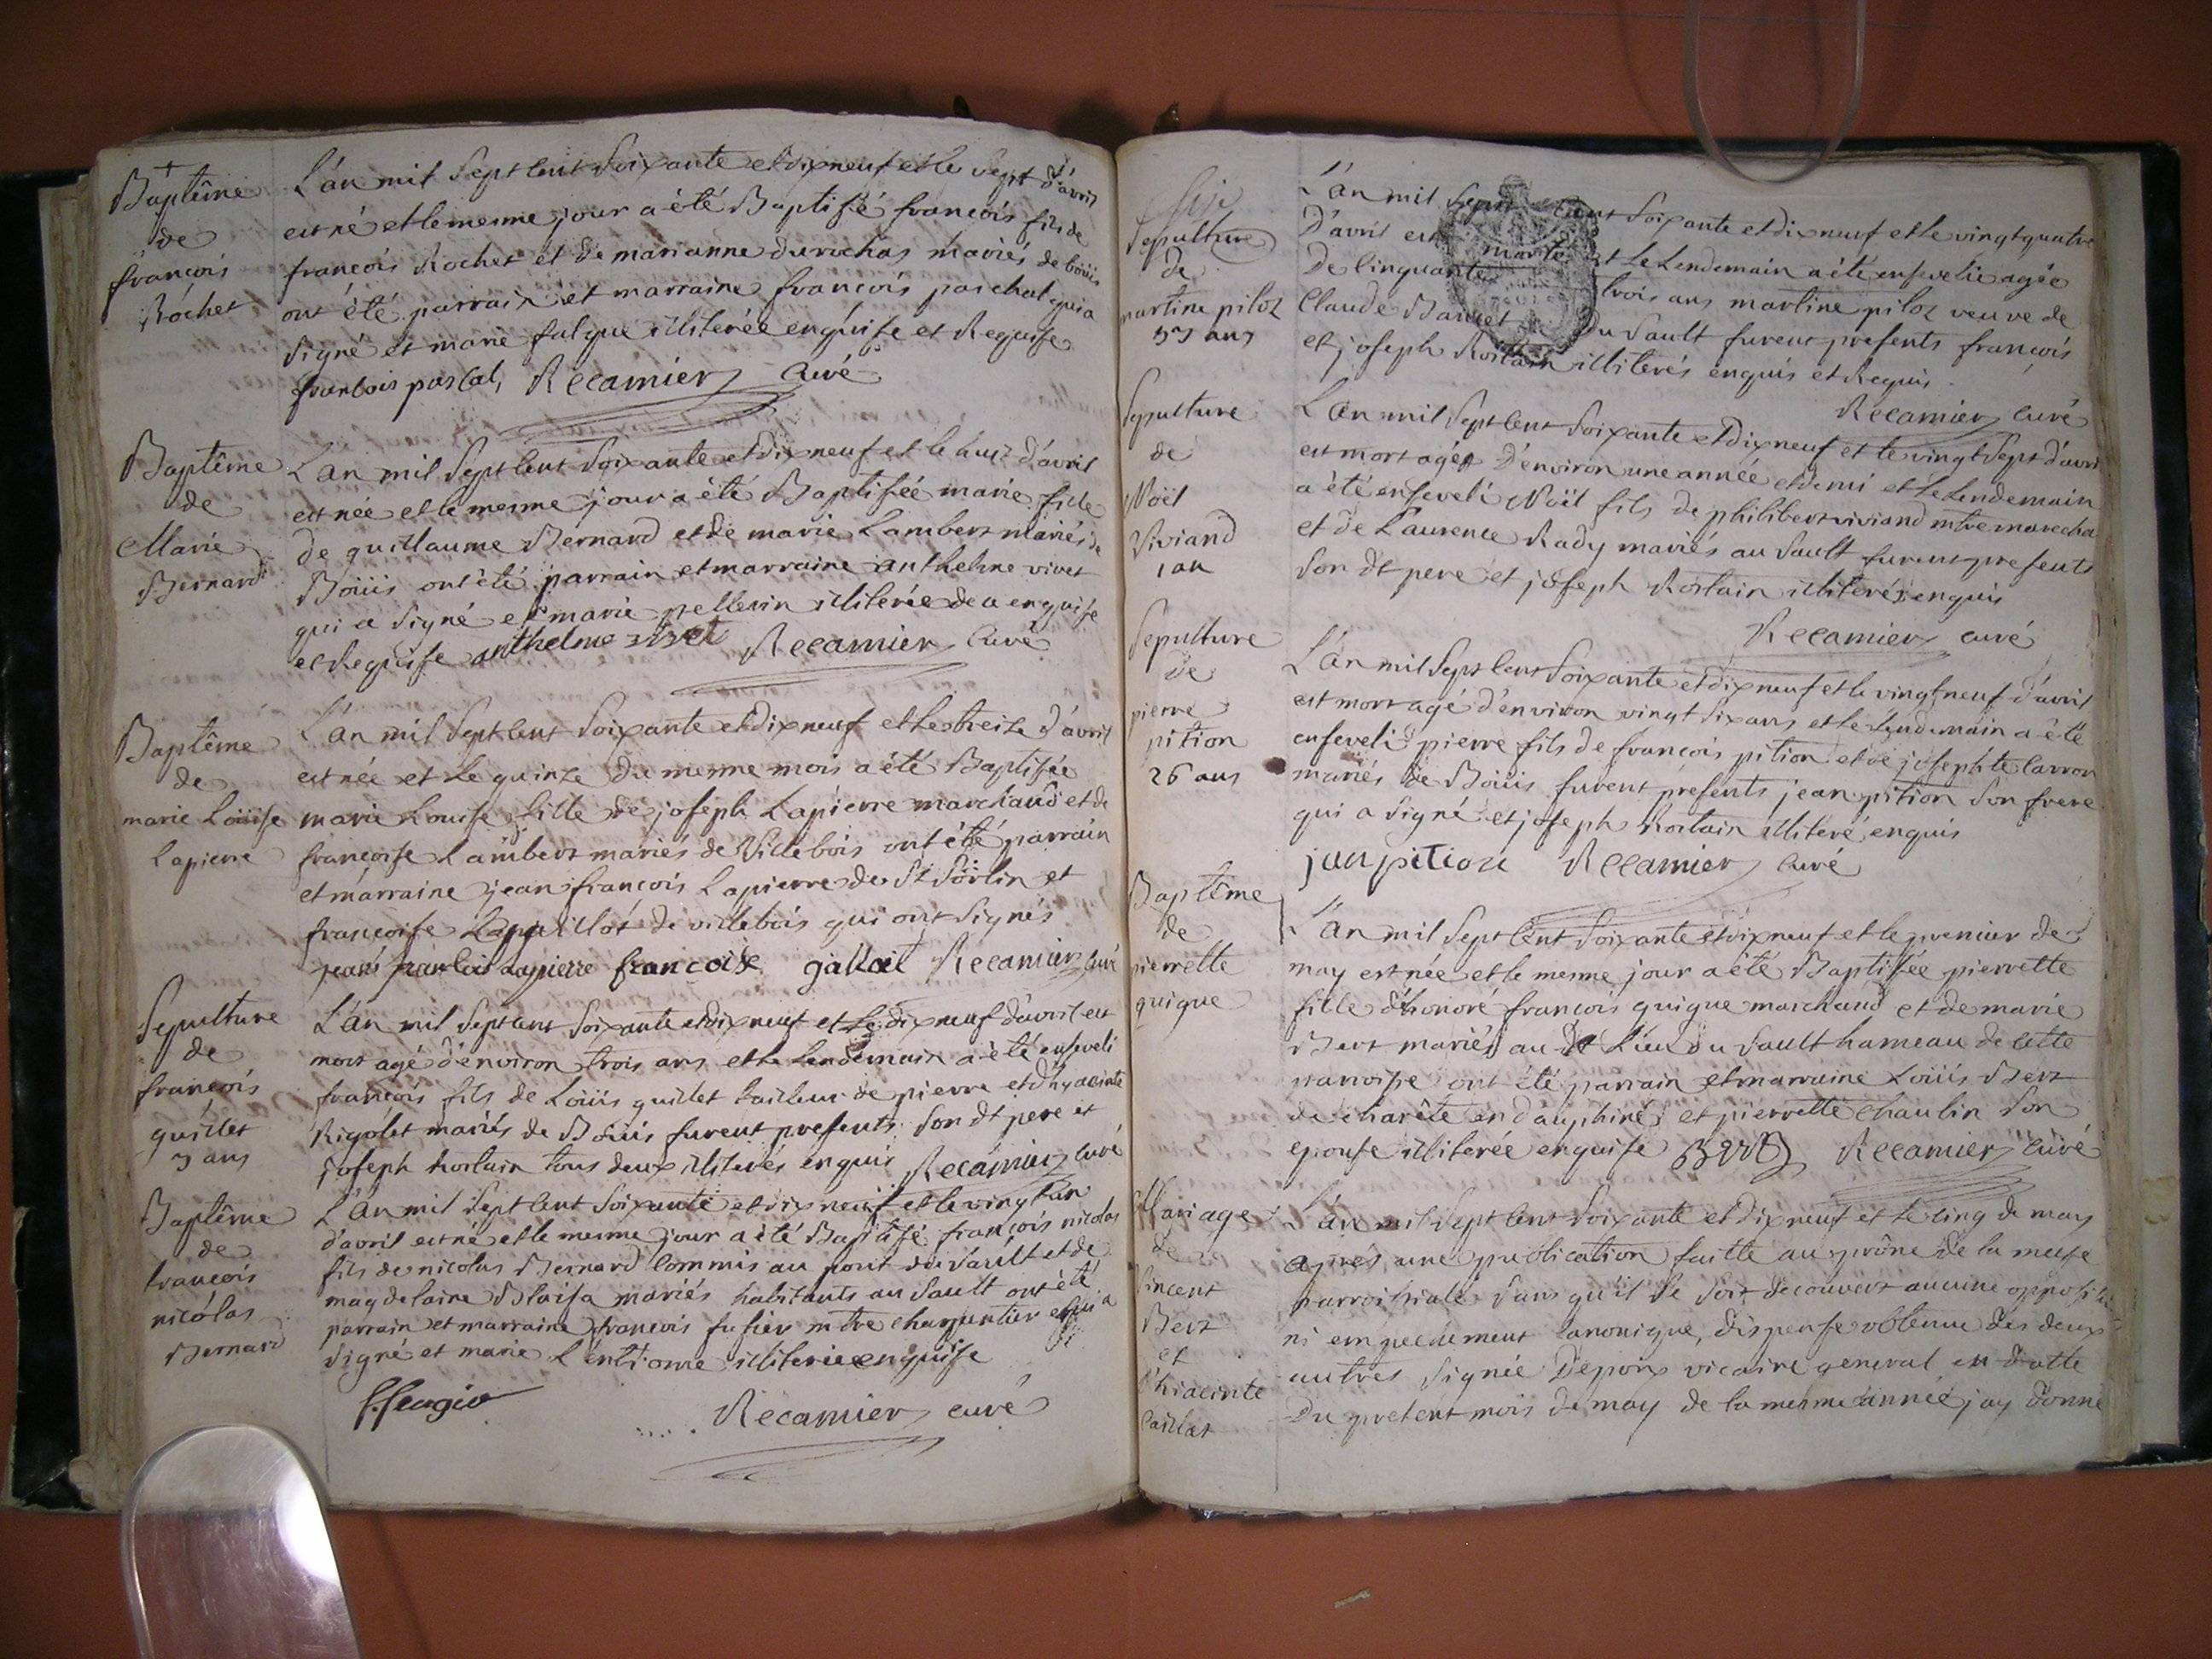 Baptême
de
françois
Rochet
L'án mil Sept Cent Soixante et dix neuf et le Sept d'avril
est né et le mesme jour a été Baptisé françois fils de
françois Rochet et de marianne durochas mariés de boüis
ont été parrain et marraine françois paschal qui a
Signé et marie falque illiterée enquise et Requise
francois pascal, Récamier Curé
Baptême
de
Marie
Bernard
L'an mil Sept Cent Soixante et dix neuf et le huit d'avril
est née et le mesme jour a été Baptisée marie fille
de guillaume Bernard et de marie Lambert mariés de
Boüis ont été parrain et marraine anthelme vivet
qui a Signé et marie pellerin illiterée de ce enquise
et Requise anthelme vivet Récamier Curé
Baptême
de
marie Loüise
Lapierre
L'án mil Sept Cent Soixante et dix neuf et le treize d'avril
est née et Le quinze du mesme mois a été Baptisée
marie Louise fille de joseph Lapierre marchand et de
françoise Lambert mariés de Villebois ont été parrain
et marraine jean françois Lapierre de St Sorlin et
françoise de villebois qui ont Signés
jean francois Lapierre francoise Récamier Curé
Sepulture
de
françois
guillet
3 ans
L'án mil Sept Cent Soixante et dix neuf et le dix neuf d'avril est
mort agé d'environ trois ans et le Lendemain a été enseveli
françois fils de Loüis guillet tailleur de pierre et d'hyacinte
Rigolet mariés de Boüis furent presents Son dt pere et
joseph Rostain tous deux illiterés enquis Récamier Curé
Baptême
de
francois
nicólas
Bernard
L'án mil Sept Cent Soixante et dix neuf et le vingt un
d'avril est né et le mesme jour a été Baptisé françois nicolas
fils de nicolas Bernard Commis au pont du Sault et de
magdelaine Blaisa mariés habitants au Sault ont été
parrain et marraine françois fusier mtre charpentier qui a
Signé et marie illiterée enquise
Récamier curé
Sepulture
de
martine piloz
53 ans
L'án mil Sept Cent Soixante et dix neuf et le vingt quatre
D'avril est morte et Le Lendemain a été ensevelie agée
De Cinquante trois ans martine piloz veuve de
Claude du Sault furent presents françois
et joseph Rostain illiterés enquis et Requis
Récamier Curé
Sepulture
de
Noël
Viviand
1 an
L'an mil Sept Cent Soixante et dix neuf et le vingt Sept d'avril
est mort agé D'environ une année et demi et le Lendemain
a été enseveli Noël fils de philibert viviand mtre marechal
et de Laurence Rady mariés au Sault furent presents
Son dt pere et joseph Rostain illiterés enquis
Récamier curé
Sepulture
de
pierre
pition
26 ans
L'án mil Sept Cent Soixante et dix neuf et le vingt neuf d'avril
est mort agé d'environ vingt Six ans et le Lendemain a été
enseveli pierre fils de françois pition et de josephte Carron
mariés de Boüis furent présents jean pition Son frere
qui a Signé et joseph Rostain illiteré enquis
jean pition Récamier Curé
Baptême
de
pierrette
guigue
L'an mil Sept Cent Soixante et dix neuf et le premier de
may est née et le mesme jour a été Baptisée pierrette
fille d'honoré françois guigue marchand et de marie
Bert mariés au dt Lieu du Sault hameau de cette
parroisse ont été parrain et marraine Loüis Bert
de charête en dauphiné et pierrette Chaulin Son
epouse illiterée enquise Bert Récamier Curé
Mariage
de
Vincent
Bert
et
d'hiacinte
Caillat
L'án mil Sept Cent Soixante et dix neuf et le Cinq de may
Après une publication faitte au prône de la messe
parroissiale Sans qu'il Se Soit decouvert aucune opposition
ni empechement Canonique, dispense obtenue des deux
autres Signée vicaire general en datte
Du present mois de may de la mesme année j'ay donné